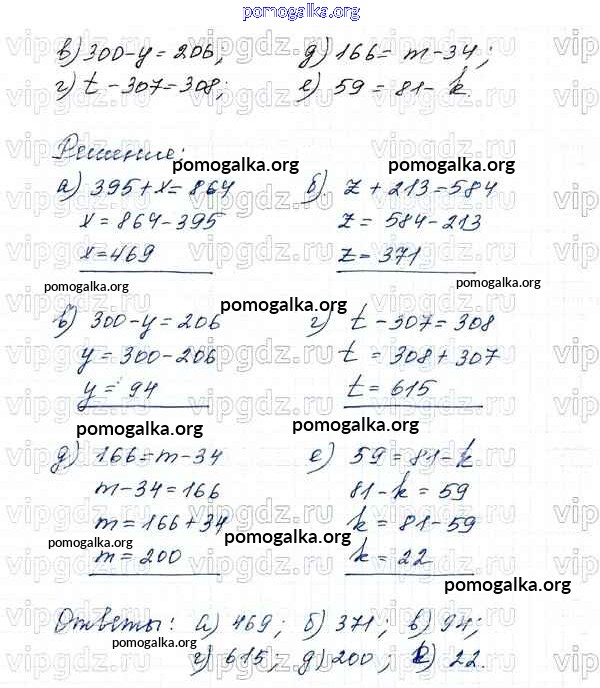 pomogalka.org
в) 300-y=206; д) 166=m-34;
г) t-307=308; е) 59=81-k.
Решение:
pomogalka.org pomogalka.org
а) 395+x=864 б) z+213=584
x=864-395 z=584-213
x=469 z=371
pomogalka.org pomogalka.org
pomogalka.org pomogalka.org
в) 300-y=206 г) t-307=308
y=300-206 t=308+307
y=94 t=615
pomogalka.org pomogalka.org
д) 166=m-34 е) 59=81-k
m-34=166 81-k=59
m=166+34 k=81-59
pomogalka.org pomogalka.org
m=200 k=22
pomogalka.org
Ответы: а) 469; б) 371; в) 94;
г) 615; д) 200; е) 22.
vipgdz.ru vipgdz.ru vipgdz.ru